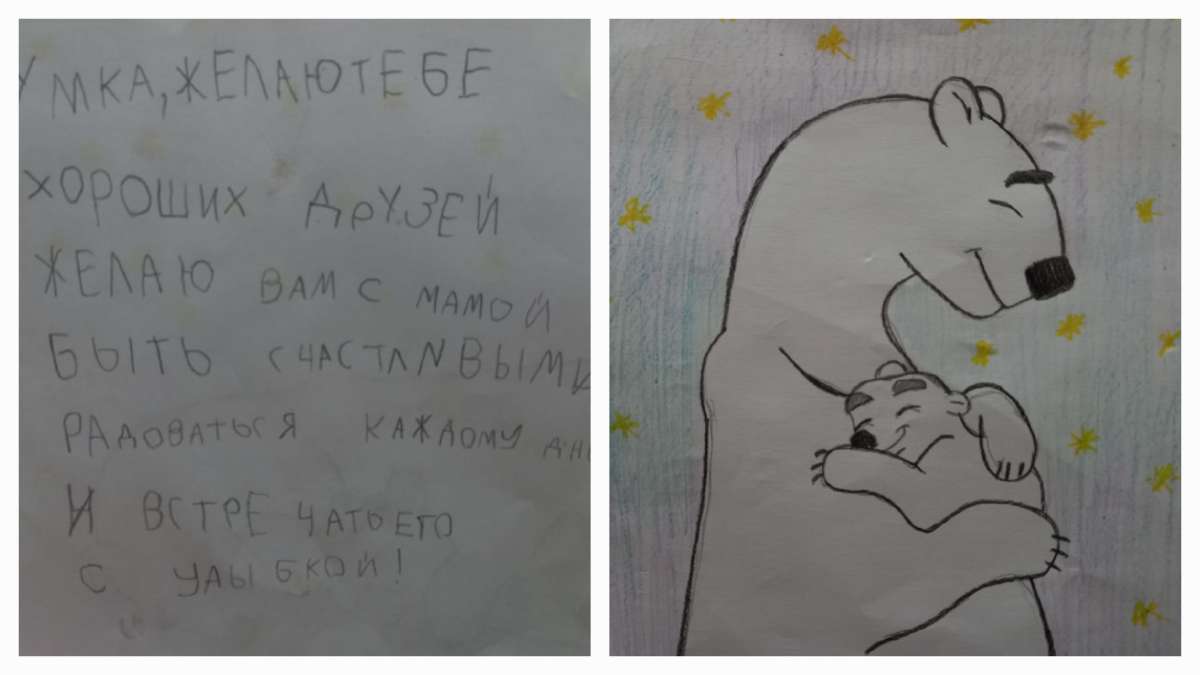 УМКА, ЖЕЛАЮ ТЕБЕ
ХОРОШИХ ДРУЗЕЙ
ЖЕЛАЮ ВАМ С МАМОЙ
БЫТЬ СЧАСТЛИВЫМИ
РАДОВАТЬСЯ КАЖДОМУ ДН
И ВСТРЕЧАТЬ ЕГО
С УЛЫБКОЙ!